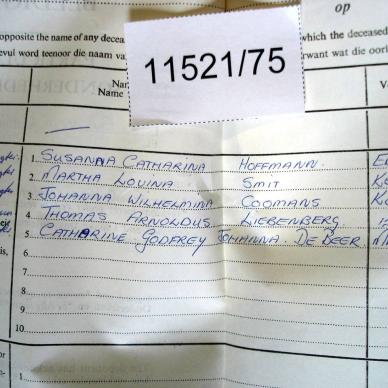 op
opposite the name of any decea
which the deceased
evul word teenoor die naam va
rwant wat die oorl
11521/75
Nar
Name
Va
1. SUSANNA CATHARINA HOFFMANN.
2. MARTHA LOUINA SMIT
3. JOHANNA WILHELMINA COOMANS
4. THOMAS ARNOLDUS LIEBENBERG
5. CATHARINE GODFREY JOHANNA. DE BEER
6.
7.
8.
9.
10.
or
1.